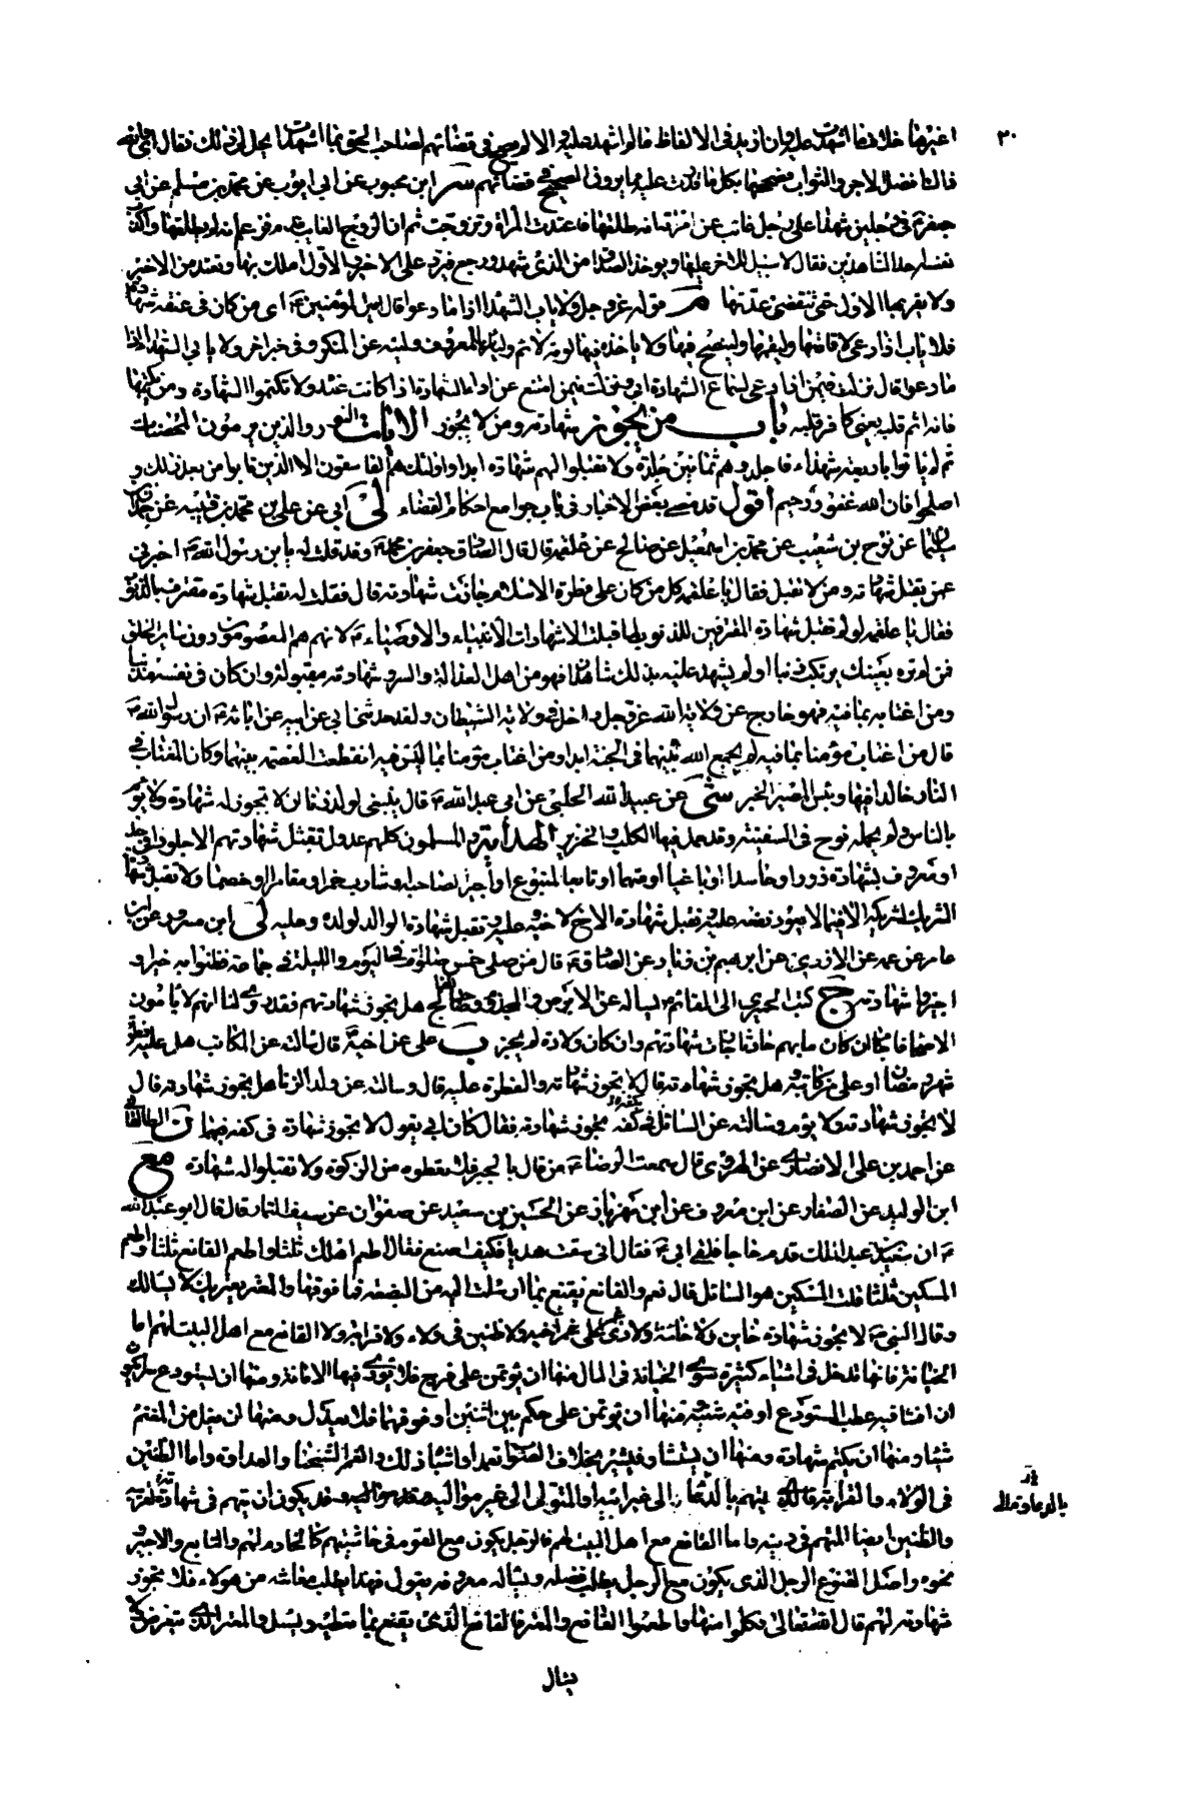 ٣٠
اغيرها خلاف ما اشهدت عليه وان ازيد في الالفاظ قالوا اشهد عليه والا لم يصح في قضائهم لصاحب الحق بما اشهدت ايحل لي ذلك فقال اي والله
فالك افضل الاجر والثواب فصححها بكل ما قدرت عليه مما يرون الصحيح في قضائهم سر ابن محبوب عن ابي ايوب عن محمد بن مسلم عن ابي
جعفر ع في رجلين شهدا على رجل غائب عن امرأته انه طلقها فاعتدت المرأة وتزوجت ثم ان الزوج الغايب قدم فزعم انه لم يطلقها واكذب
نفسه احد الشاهدين فقال لا سبيل للاخر عليها ويوخذ الصداق من الذي شهد ورجع فيرد على الاخير والاول املك بها وتعتد من الاخير
ولا يقربها الاول حتى تنقضي عدتها م قوله عز وجل ولا ياب الشهداء اذا ما دعوا قال امير المؤمنين ع اي من كان في عنقه شهادة
فلا ياب اذا دعي لاقامتها وليقمها ولينصح فيها ولا ياخذه فيها لومة لائم وليأمر بالمعروف ولينه عن المنكر وفي خبر اخر ولا ياب الشهداء اذا
ما دعوا قال نزلت فيمن اذا دعي لسماع الشهادة ابى ونزلت فيمن امتنع عن اداء الشهادة اذا كانت عنده ولا تكتموا الشهادة ومن يكتمها
فانه اثم قلبه يعني كافر قلبه باب من يجوز شهادته ومن لا يجوز الايات النور والذين يرمون المحصنات
ثم لم ياتوا باربعة شهداء فاجلدوهم ثمانين جلدة ولا تقبلوا لهم شهادة ابدا واولئك هم الفاسقون الا الذين تابوا من بعد ذلك و
اصلحوا فان الله غفور رحيم اقول قد مضى بعض الاخبار في باب جوامع احكام القضاء لي ابي عن علي بن محمد بن قتيبه عن حمدان بن
سليمان عن نوح بن شعيب عن محمد بن اسمعيل عن صالح عن علقمه قال قال الصادق جعفر بن محمد ع وقد قلت له يا بن رسول الله ع اخبرني
عمن يقبل شهادته ومن لا تقبل فقال يا علقمه كل من كان على فطرة الاسلام جازت شهادته قال فقلت له تقبل شهادة مقترف بالذنوب
فقال يا علقمه لو لم تقبل شهادة المقترفين للذنوب لما قبلت الا شهادات الانبياء والاوصياء ع لانهم هم المعصومون دون ساير الخلق
فمن لم تره بعينك يرتكب ذنبا او لم يشهد عليه بذلك شاهدان فهو من اهل العدالة والستر وشهادته مقبولة وان كان في نفسه مذنبا
ومن اغتابه بما فيه فهو خارج عن ولاية الله عز وجل داخل في ولاية الشيطان ولقد حدثني ابي عن ابيه عن ابائه ع ان رسول الله ص
قال من اغتاب مؤمنا بما فيه لم يجمع الله بينهما في الجنة ابدا ومن اغتاب مؤمنا بما ليس فيه انقطعت العصمة بينهما وكان المغتاب في
النار خالدا فيها وبئس المصير الخبر شي عن عبيد الله الحلبي عن ابي عبد الله ع قال ينبغي لولد الزنا ان لا تجوز له شهادة ولا يؤم
بالناس ولم يحمله نوح في السفينة وقد حمل فيها الكلب والخنزير الهداية والمسلمون كلهم عدول تقبل شهادتهم الا مجلودا في حد
او معروف بشهادة زور او حاسدا او باغيا او متهما او تابعا لمتبوع او اجير لصاحبه وشارب خمر او مقامر او خصما ولا تقبل شهادة
الشريك لشريكه الا فيما لا يعود نفعه عليه وتقبل شهادة الاخ لاخيه وعليه وتقبل شهادة الوالد لولده وعليه لي ابن مسرور عن ابن
عامر عن عمه عن الازدي عن ابرهيم بن زياد عن الصادق ع قال من صلى خمس صلوات في اليوم والليلة في جماعة فظنوا به خيرا و
اجيزوا شهادته ج كتب الحميري الى القائم ع يساله عن الابرص والمجذوم وصاحب الفالج هل يجوز شهادتهم فقد روي لنا انهم لا يأمون
الاصحاء فاجاب ان كان ما بهم حادثا جازت شهادتهم وان كان ولادة لم يجز ب علي عن اخيه ع قال سالته عن المكاتب هل عليه فطرة
شهر رمضان او على من كاتبه وهل يجوز شهادته قال لا يجوز شهادته والفطرة عليه قال وسالته عن ولد الزنا هل يجوز شهادته قال
لا يجوز شهادته ولا يؤم وسالته عن السائل في كفه يجوز شهادته فقال كان ابي يقول لا يجوز شهادة في كفه ن الطالقاني
عن احمد بن علي الانصاري عن الهروي قال سمعت الرضا ع من قال بالجبر فلا تعطوه من الزكوة ولا تقبلوا له شهادة مع
ابن الوليد عن الصفار عن ابن معروف عن ابن مهزيار عن الحسين بن سعيد عن صفوان عن سيف التمار قال قال ابو عبد الله
ع ان سعيد بن عبد الملك قدم حاجا فلقي ابي ع فقال اني سقت هديا فكيف اصنع فقال اطعم اهلك ثلثا واطعم القانع ثلثا واطعم
المسكين ثلثا قلت المسكين هو السائل قال نعم والقانع يقنع بما ارسلت اليه من البضعة فما فوقها والمعتر يعتريك لا يسالك
وقال النبي ص لا يجوز شهادة خاين ولا خائنة ولا ذي غمر على اخيه ولا ظنين في ولاء ولا قرابة ولا القانع مع اهل البيت لهم اما
الخيانة فانها تدخل في اشياء كثيرة سوى الخيانة في المال منها ان يؤتمن على فرج فلا يؤدي فيها الامانة ومنها ان يستودع سرا يكون
ان افشا فيه عطب المستودع او فيه شينه ومنها ان يؤتمن على حكم بين اثنين او فوقهما فلا يعدل ومنها ان يغل من المغنم
شيئا ومنها ان يكتم شهادة ومنها ان يستشار فيشير بخلاف الصواب تعمدا واشباه ذلك والغمر الشحناء والعداوة واما الظنين
في الولاء والقرابة فالذي يتهم بالدعاء الى غير ابيه او المتولي الى غير مواليه وقد يكون ان يتهم في شهادته لقريبه
بالدعاوة الى
والظنين ايضا المتهم في دينه واما القانع مع اهل البيت لهم فالرجل يكون مع القوم في حاشيتهم كالخادم لهم والتابع والاجير و
نحوه واصل القنوع الرجل الذي يكون مع الرجل يطلب فضله ويساله معروفه يقول فهذا يطلب معاشه من هولاء فلا يجوز
شهادته لهم قال الله تعالى فكلوا منها واطعموا القانع والمعتر فالقانع الذي يقنع بما تعطيه ويسئل والمعتر الذي يتعرض ولا
يسال